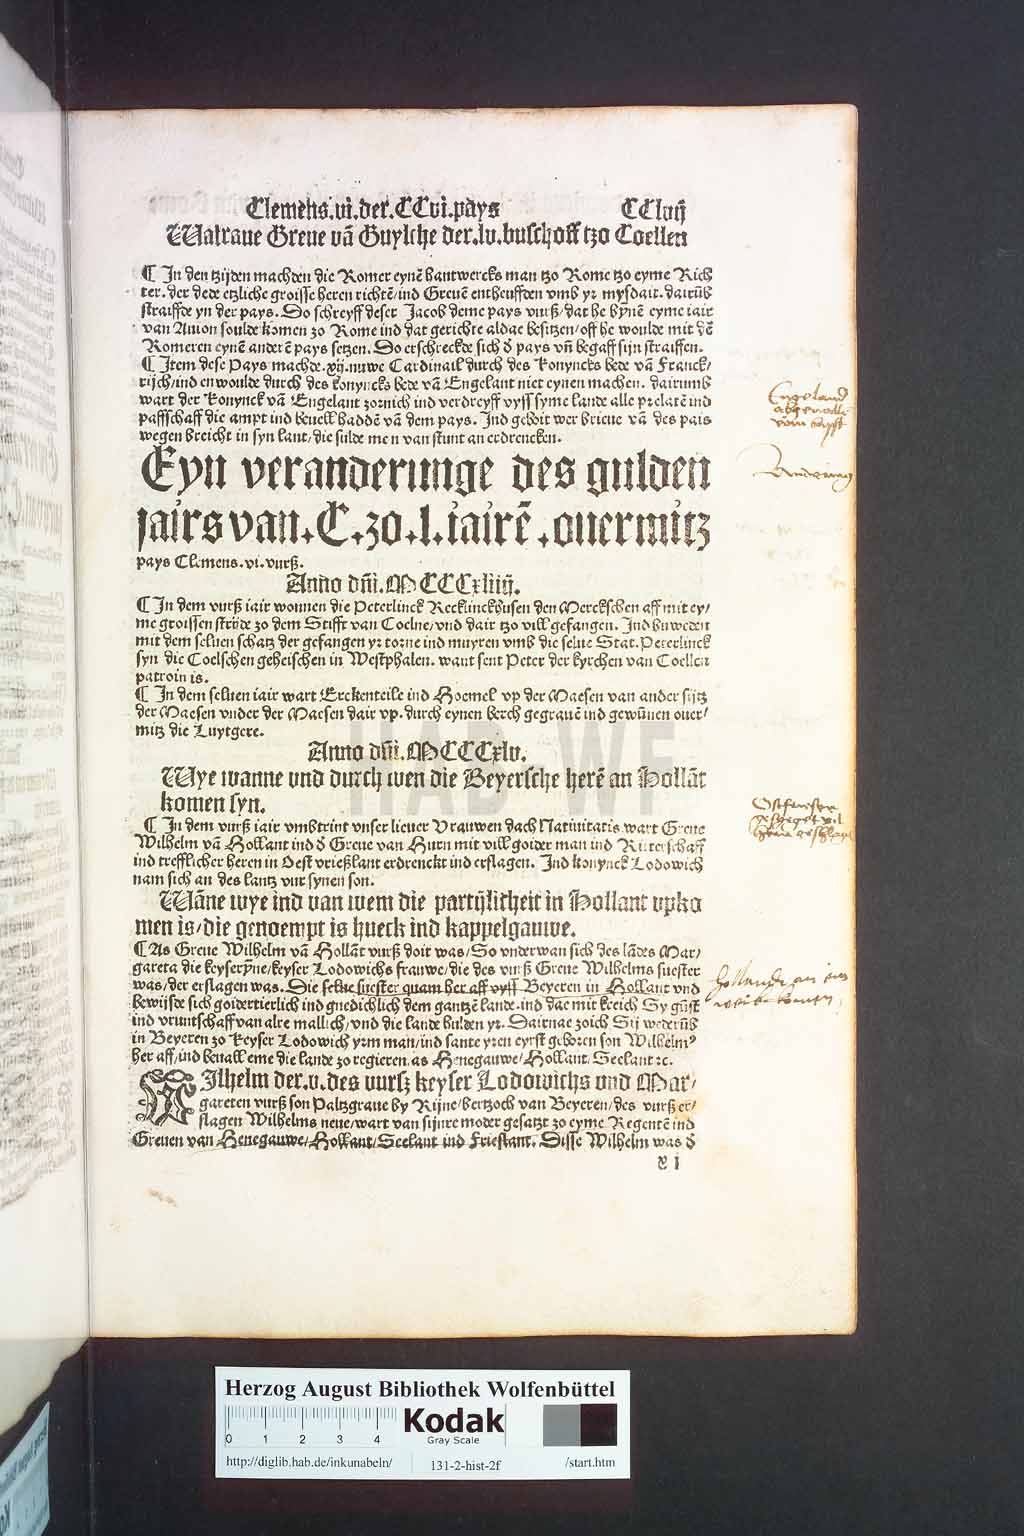 Clemens.vi.der.CCvi.pays CClvij
Walraue Greue vā Guylche der.lv.buschoff tzo Coellen
¶ In den tzijden machden die Romer eynē hantwercks man tzo Rome tzo eyme Rich
ter. der dede etzliche groisse heren richtē/ind Greuē entheuffden vmb yr mysdait. dairūb
straiffde yn der pays. Do schreyff deser Jacob deme pays vurß/dat he bynē eyme iair
van Auion soulde komen zo Rome ind dat gerichte aldae besitzen/off he woulde mit dē
Romeren eynē anderē pays setzen. Do erschreckde sich d pays vn̄ begaff sijn straiffen.
¶ Item dese Pays machde.xij.nuwe Cardinail durch des konyncks bede vā Franck/
rijch/ind en woulde durch des konyncks bede vā Engelant niet eynen machen. dairumb
wart der Konynck vā Engelant zornich ind verdreyff vyss syme lande alle prelatē ind
paffschaff die ampt ind beuell haddē vā dem pays. Ind geboit wer brieue vā des pais
wegen breicht in syn lant/die sulde men van stunt an erdrencken.
Eyn veranderunge des gulden
jairs van.C.zo.l.iairē.ouermitz
pays Clemens.vi.vurß.
Anno dn̄i.MCCCxliiij.
¶ In dem vurß iair wonnen die Peterlinck Recklinckhusen den Merckschen aff mit ey/
me groissen strijde zo dem Stifft van Coelne/vnd dair tzo vill gefangen. Ind buweden
mit dem seluen schatz der gefangen yr torne ind muyren vmb die selue Stat. Peterlinck
syn die Coelschen geheischen in Westphalen. want sent Peter der kyrchen van Coellen
patroin is.
¶ In dem seluen iair wart Erckenteile ind Hoemel vp der Maesen van ander sijtz
der Maesen vnder der Maesen dair vp. durch eynen berch gegrauē ind gewūnen ouer/
mitz die Luytgere.
Anno dn̄i.MCCCxlv.
Wye wanne vnd durch wen die Beyersche herē an Hollāt
komen syn.
¶ In dem vurß iair vmbtrint vnser lieuer Vrauwen dach Natiuitatis wart Greue
Wilhelm vā Hollant ind d Greue van Hurn mit vill goider man ind Ritterschaff
ind trefflicher heren in Oest vrießlant erdrenckt ind erslagen. Ind konynck Lodowich
nam sich an des lantz vur synen son.
Wāne wye ind van wem die partijlicheit in Hollant vpko
men is/die genoempt is hueck ind kappelgauwe.
¶ As Greue Wilhelm vā Hollāt vurß doit was/So vnderwan sich des lādes Mar/
gareta die keyserȳne/keyser Lodowichs frauwe/die des vurß Greue Wilhelms suester
was/der erslagen was. Die selue suester quam her aff vyss Beyeren in Hollant vnd
bewijsde sich goidertierlich ind gnedichlich dem gantzē lande.ind dae mit kreich Sy gūst
ind vruntschaff van alre mallich/vnd die lande hulden yr. Dairnae zoich Sij wederūb
in Beyeren zo keyser Lodowich yrm man/ind sante yren eyrst geboren son Wilhelm⁹
her aff/ind beuall eme die lande zo regieren.as Henegauwe/Hollant/Seelant ꝛc.
WIlhelm der.v.des vurß keyser Lodowichs vnd Mar/
gareten vurß son Paltzgraue by Rijne/hertzoch van Beyeren/des vurß er/
slagen Wilhelms neue/wart van sijnre moder gesatzt zo eyme Regentē ind
Greuen van Henegauwe/Hollant/Seelant ind Frieslant. Disse Wilhelm was d
x i
Engeland
abgevallē
vom bapst
HAB-WF
Herzog August Bibliothek Wolfenbüttel
0 1 2 3 4
Kodak
Gray Scale
http://diglib.hab.de/inkunabeln/ 131-2-hist-2f /start.htm